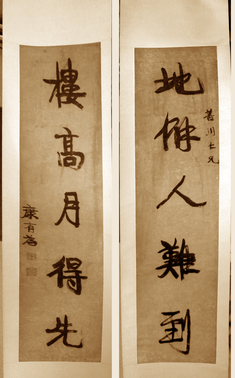 地僻人難到
若川仁兄
樓高月得先
康有為